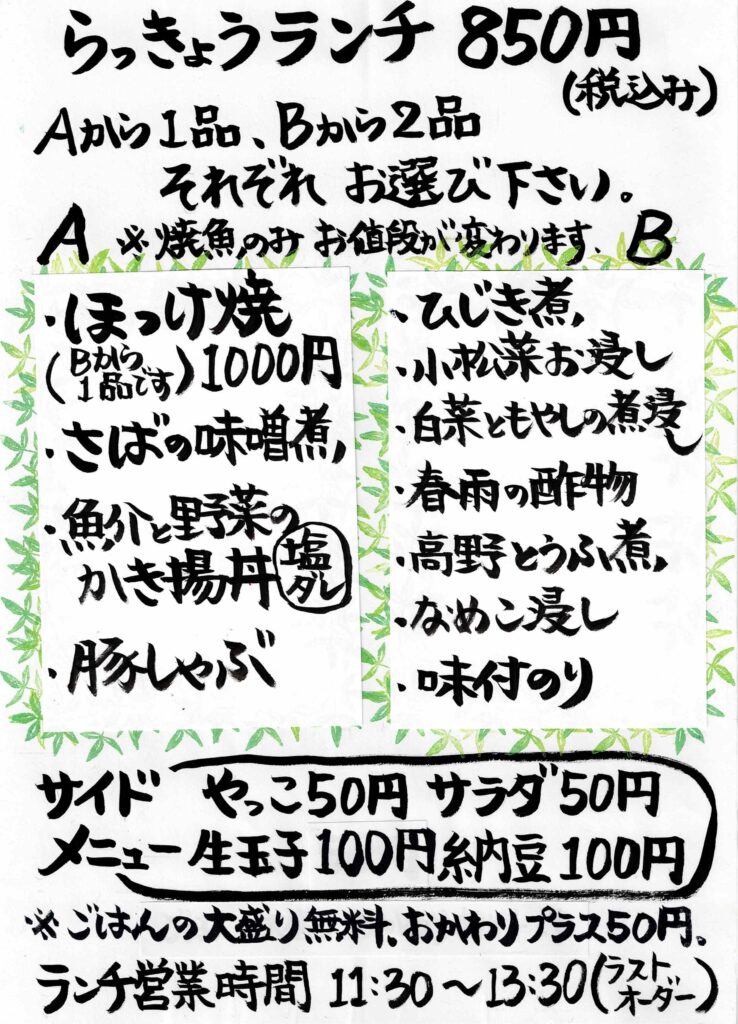 らっきょうランチ 850円
(税込み)
Aから1品、Bから2品
それぞれ お選び下さい。
A ※焼魚のみ お値段が変わります. B
・ほっけ焼
(Bから1品です)1000円
・さばの味噌煮
・魚介と野菜の
かき揚丼 塩ダレ
・豚しゃぶ
・ひじき煮
・小松菜お浸し
・白菜ともやしの煮浸し
・春雨の酢物
・高野とうふ煮
・なめこ浸し
・味付のり
サイド やっこ50円 サラダ50円
メニュー 生玉子100円 納豆100円
※ごはんの大盛り無料。おかわりプラス50円。
ランチ営業時間 11:30〜13:30(ラストオーダー)